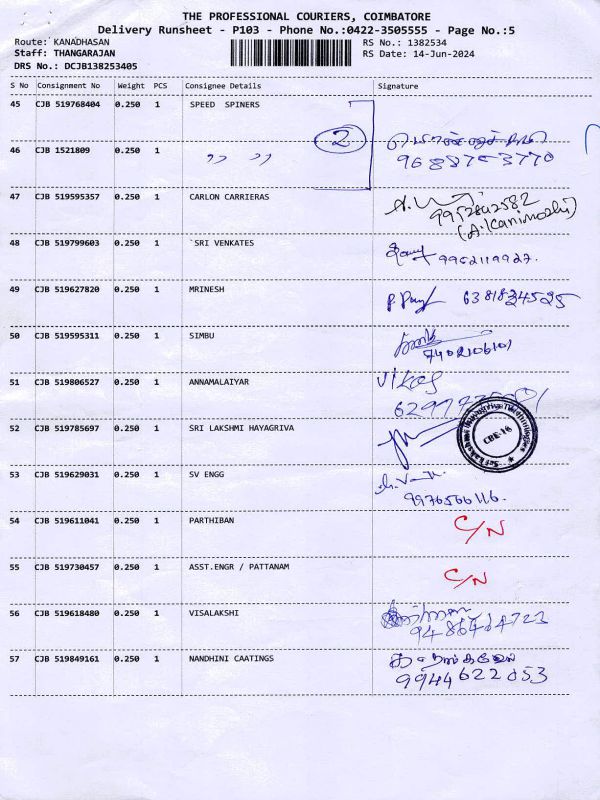 THE PROFESSIONAL COURIERS, COIMBATORE
Delivery Runsheet - P103 - Phone No.:0422-3505555 - Page No.:5
Route: KANADHASAN RS No.: 1382534
Staff: THANGARAJAN RS Date: 14-Jun-2024
DRS No.: DCJB138253405
S No Consignment No Weight PCS Consignee Details Signature
45 CJB 519768404 0.250 1 SPEED SPINERS
2
46 CJB 1521809 0.250 1 ,, ,,
9688753770
47 CJB 519595357 0.250 1 CARLON CARRIERAS
9952842582
(A.Kanimozhi)
48 CJB 519799603 0.250 1 `SRI VENKATES 9962119927.
49 CJB 519627820 0.250 1 MRINESH 6381834525
50 CJB 519595311 0.250 1 SIMBU
7402106101
51 CJB 519806527 0.250 1 ANNAMALAIYAR Vikas
52 CJB 519785697 0.250 1 SRI LAKSHMI HAYAGRIVA
CBE-16
53 CJB 519629031 0.250 1 SV ENGG
9976566116.
54 CJB 519611041 0.250 1 PARTHIBAN C/N
55 CJB 519730457 0.250 1 ASST.ENGR / PATTANAM C/N
56 CJB 519618480 0.250 1 VISALAKSHI
9486464723
57 CJB 519849161 0.250 1 NANDHINI CAATINGS
9944622053